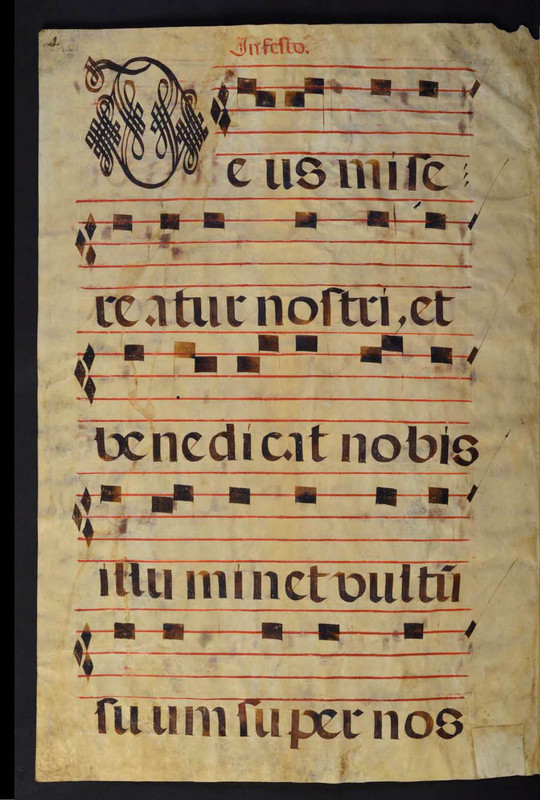 4
In festo.
Deus mise:
reatur nostri, et
benedicat nobis
illuminet vultū
suum super nos